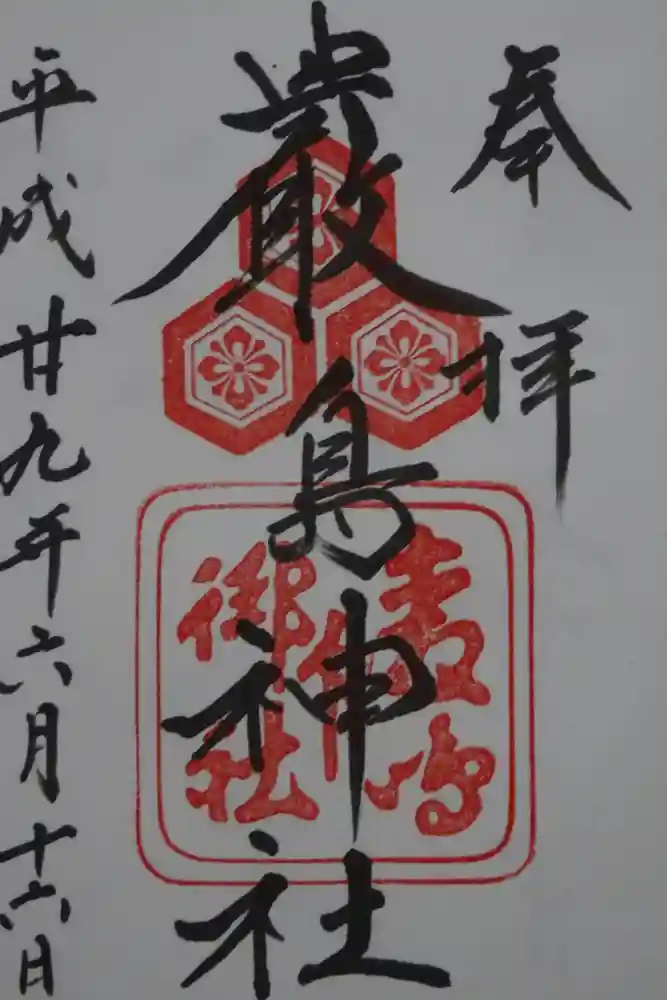 奉拝
嚴島神社
平成廿九年六月十六日
嚴島
神
御社